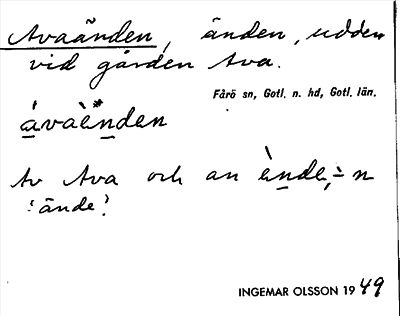 Avaänden, änden, udden
vid gården Ava.
Fårö sn, Gotl. n. hd, Gotl. län.
ávaènden
Av Ava och an ènde, ÷n
'ände'.
INGEMAR OLSSON 1949